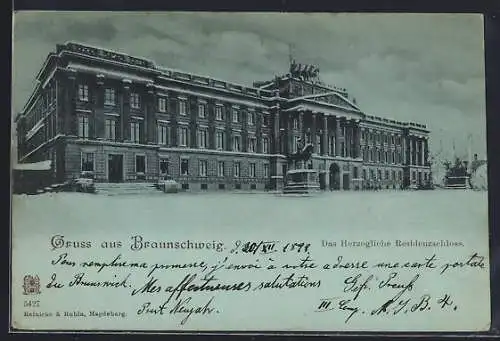 Gruss aus Braunschweig. d. 20/XII 1898
Das Herzogliche Residenzschloss.
Pour remplir ma promesse, j'envoi à votre adresse une carte portale
de Brunswick. Mes affectueuses salutations
Prosit Neujahr.
5427
Reinicke & Rubin, Magdeburg.